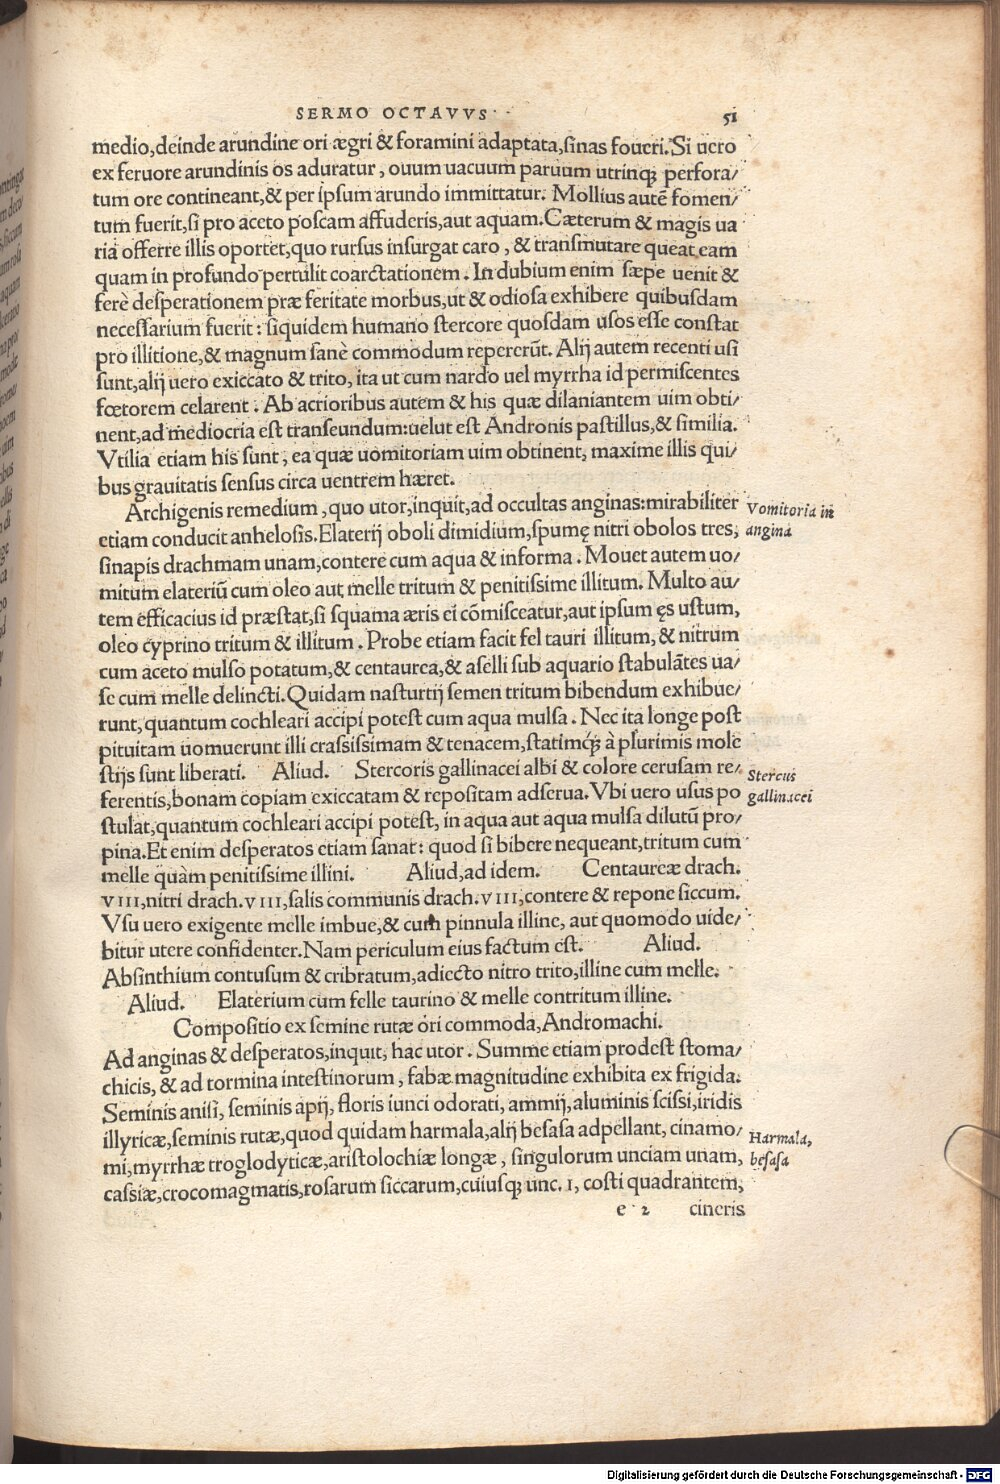 SERMO OCTAVVS
51
medio,deinde arundine ori ægri & foramini adaptata,sinas foueri.Si uero
ex feruore arundinis os aduratur, ouum uacuum paruum utrinq; perfora/
tum ore contineant,& per ipsum arundo immittatur. Mollius autē fomen/
tum fuerit,si pro aceto poscam affuderis,aut aquam.Cæterum & magis ua
ria offerre illis oportet,quo rursus insurgat caro, & transmutare queat eam
quam in profundo pertulit coarctationem. In dubium enim sæpe uenit &
ferè desperationem præ feritate morbus,ut & odiosa exhibere quibusdam
necessarium fuerit: siquidem humano stercore quosdam usos esse constat
pro illitione,& magnum sanè commodum repererūt. Alij autem recenti usi
sunt,alij uero exiccato & trito, ita ut cum nardo uel myrrha id permiscentes
fœtorem celarent. Ab acrioribus autem & his quæ dilaniantem uim obti/
nent,ad mediocria est transeundum:uelut est Andronis pastillus,& similia.
Vtilia etiam his sunt, ea quæ uomitoriam uim obtinent, maxime illis qui/
bus grauitatis sensus circa uentrem hæret.
Archigenis remedium, quo utor,inquit,ad occultas anginas:mirabiliter
Vomitoria in
etiam conducit anhelosis.Elaterij oboli dimidium,spumę nitri obolos tres,
angina
sinapis drachmam unam,contere cum aqua & informa. Mouet autem uo/
mitum elateriū cum oleo aut melle tritum & penitissime illitum. Multo au/
tem efficacius id præstat,si squama æris ei cōmisceatur,aut ipsum ęs ustum,
oleo cyprino tritum & illitum. Probe etiam facit fel tauri illitum, & nitrum
cum aceto mulso potatum,& centaurea,& aselli sub aquario stabulātes ua/
se cum melle delincti.Quidam nasturtij semen tritum bibendum exhibue/
runt,quantum cochleari accipi potest cum aqua mulsa. Nec ita longe post
pituitam uomuerunt illi crassissimam & tenacem,statimq́; à plurimis mole
stijs sunt liberati. Aliud. Stercoris gallinacei albi & colore cerusam re/
Stercus
ferentis,bonam copiam exiccatam & repositam adserua.Vbi uero usus po
gallinacei
stulat,quantum cochleari accipi potest, in aqua aut aqua mulsa dilutū pro/
pina.Et enim desperatos etiam sanat: quod si bibere nequeant,tritum cum
melle quàm penitissime illini. Aliud,ad idem. Centaureæ drach.
VIII,nitri drach.VIII,salis communis drach.VIII,contere & repone siccum.
Vsu uero exigente melle imbue,& cum pinnula illine, aut quomodo uide/
bitur utere confidenter.Nam periculum eius factum est. Aliud.
Absinthium contusum & cribratum,adiecto nitro trito,illine cum melle.
Aliud. Elaterium cum felle taurino & melle contritum illine.
Compositio ex semine rutæ ori commoda,Andromachi.
Ad anginas & desperatos,inquit, hac utor. Summe etiam prodest stoma/
chicis, & ad tormina intestinorum, fabæ magnitudine exhibita ex frigida.
Seminis anisi, seminis apij, floris iunci odorati, ammij,aluminis scissi,iridis
illyricæ,seminis rutæ,quod quidam harmala,alij besasa adpellant, cinamo/
Harmala,
mi,myrrhæ troglodyticæ,aristolochiæ longæ, singulorum unciam unam,
besasa
cassiæ,crocomagmatis,rosarum siccarum,cuiusq; unc. I, costi quadrantem,
e 2 cineris
Digitalisierung gefördert durch die Deutsche Forschungsgemeinschaft - DFG